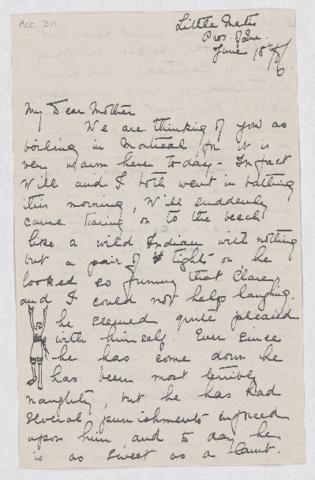 Acc. 211
Little Metis
Prov. Que.
June 18th/
6
My Dear Mother
We are thinking of you as
boiling in Montreal for it is
very warm here to-day - In fact
Will and I both went in bathing
this morning, Will suddenly
came tearing on to the beach
like a wild Indian with nothing
but a pair of tights on he
looked so funny that Clare
and I could not help laughing.
he seemed quite pleased
with himself. Ever since
he has come down he
has been most terribly
naughty, but he has had
several punishments inforced
upon him, and to day he
is as sweet as a Saint.